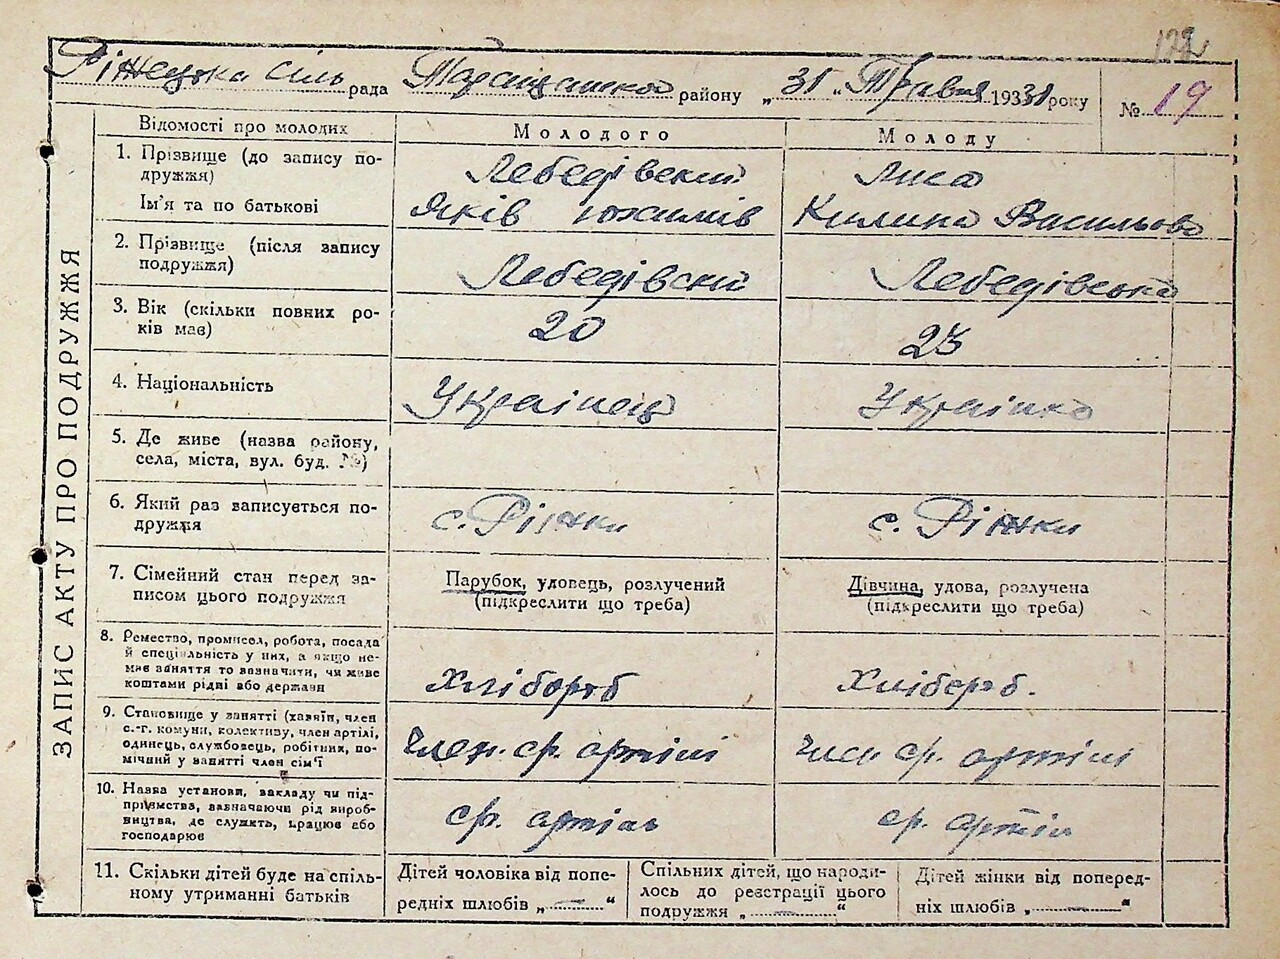 Ріжецька сіль рада Таращанського району „31 „ Травня 193 31 року
№ 19
ЗАПИС АКТУ ПРО ПОДРУЖЖЯ
Відомості про молодих Молодого Молоду
1. Прізвище (до запису подружжя) Лебедівский Лиса
Ім'я та по батькові Яків Юхимів Килина Васильова
2. Прізвище (після запису подружжя) Лебедівский Лебедівська
3. Вік (скільки повних років має) 20 23
4. Національність Українець Українка
5. Де живе (назва району, села, міста, вул. буд. №)
6. Який раз записується подружжя с. Ріжки с. Ріжки
7. Сімейний стан перед записом цього подружжя Парубок, удовець, розлучений (підкреслити що треба) Дівчина, удова, розлучена (підкреслити що треба)
8. Ремество, промисел, робота, посада й спеціяльність у них, а якщо немає заняття то зазначити, чи живе коштами рідні або держави Хлібороб Хлібороб.
9. Становище у занятті (хазяїн, член с.-г. комуни, колективу, член артілі, одинець, службовець, робітник, помічний у занятті член сім'ї Член. ср. артілі Член ср. артілі
10. Назва установи, закладу чи підприємства, зазначаючи рід виробництва, де служить, працює або господарює ср. артіль ср. артіл
11. Скільки дітей буде на спільному утриманні батьків Дітей чоловіка від попередніх шлюбів „—“ Спільних дітей, що народилось до реєстрації цього подружжя „—“ Дітей жінки від попередніх шлюбів „—“